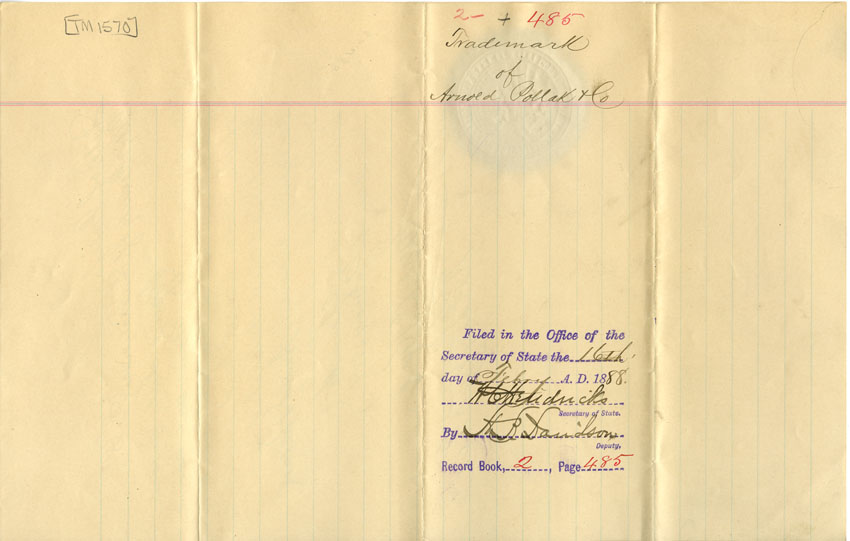 [TM1570]
2- + 485
Trademark
of
Arnold Pollak & Co
Filed in the Office of the
Secretary of State the 16th
day of Febry A. D. 1888.
Hendricks
Secretary of State.
By Davidson
Deputy.
Record Book, 2, Page 485